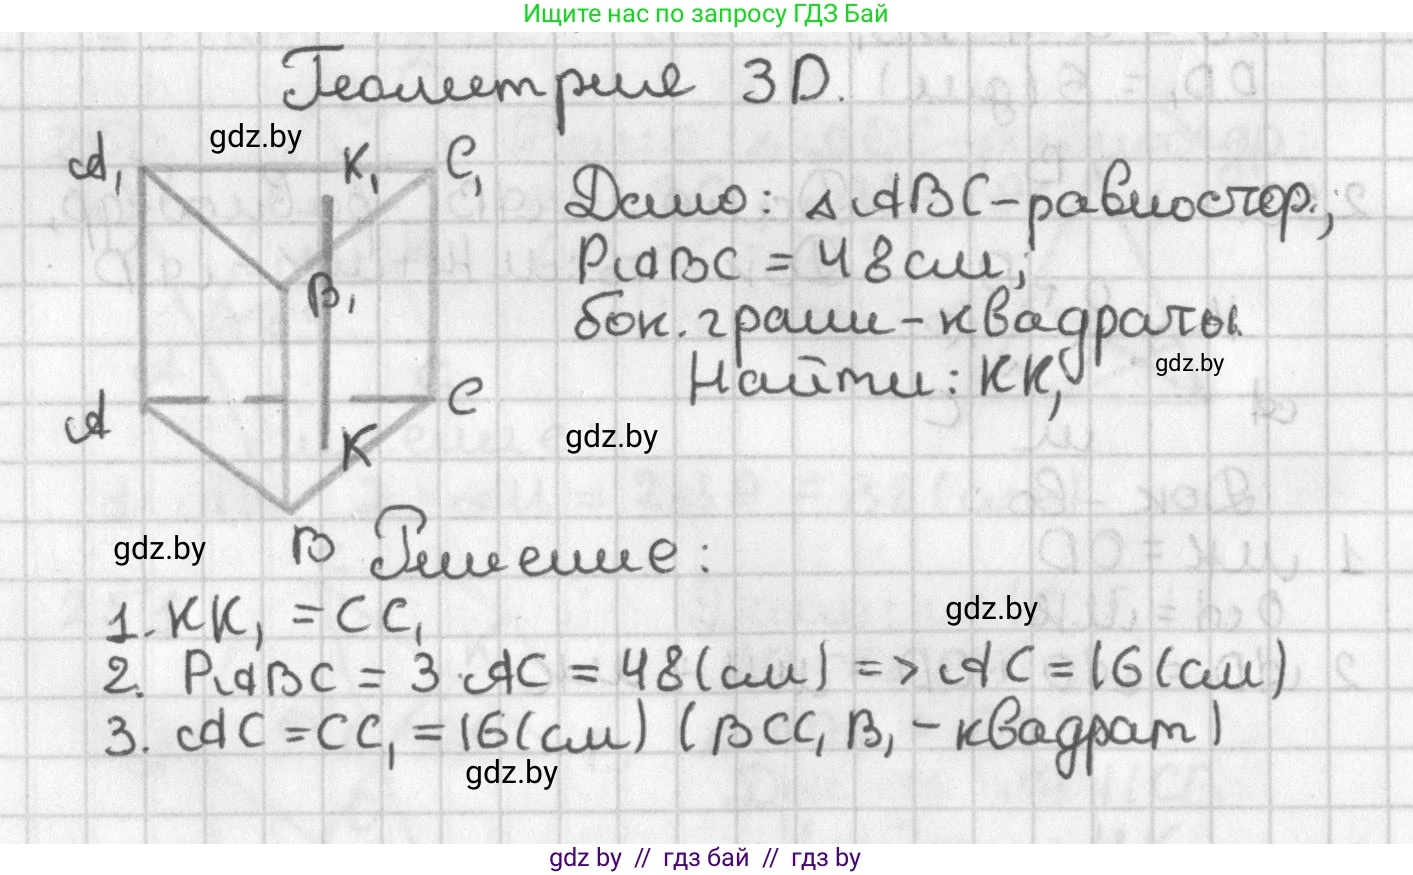 Ищите нас по запросу ГДЗ Бай
Геометрия 3D.
gdz.by
A₁
K₁
C₁
Дано: △ABC-равностор.;
PABC = 48 см;
B₁
бок. грани-квадраты.
gdz.by
Найти: KK₁
A
C
gdz.by
K
gdz.by
B
Решение:
1. KK₁ = CC₁
gdz.by
2. PABC = 3·AC = 48(см) => AC = 16(см)
3. AC = CC₁ = 16(см) (BCC₁B₁ - квадрат)
gdz.by
gdz by // гдз бай // гдз by